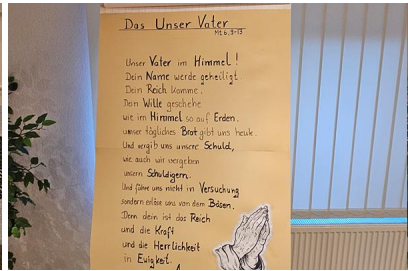 Das Unser Vater
Mt 6, 9-13
Unser Vater im Himmel!
Dein Name werde geheiligt.
Dein Reich komme.
Dein Wille geschehe
wie im Himmel so auf Erden.
unser tägliches Brot gibt uns heute.
Und vergib uns unsere Schuld,
wie auch wir vergeben
unsern Schuldigern.
Und führe uns nicht in Versuchung
sondern erlöse uns von dem Bösen.
Denn dein ist das Reich
und die Kraft
und die Herrlichkeit
in Ewigkeit.